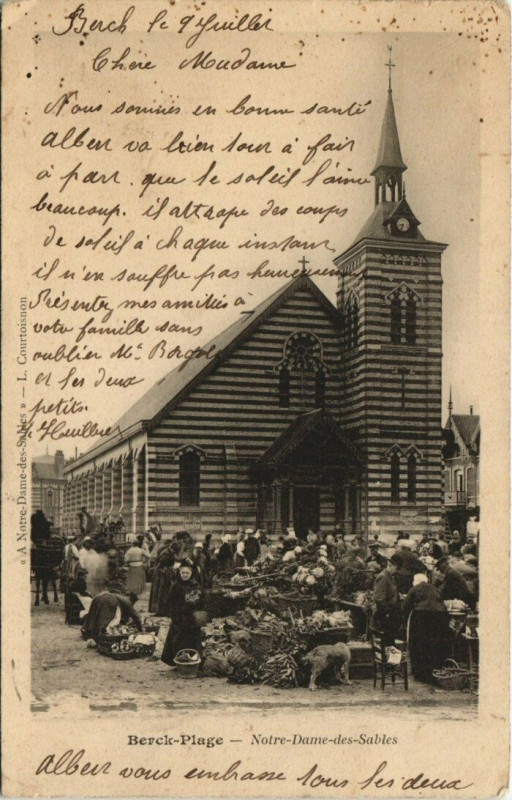 Berck le 9 Juillet
Chere Madame
Nous sommes en bonne santé
Albert va bien tout à fait
à part que le soleil l'aime
beaucoup. il attrape des coups
de soleil à chaque instant
il n'en souffre pas heureusement
Présentez mes amitiés à
votre famille sans
oublier Me
et les deux
petits.
Albert vous embrasse tous les deux
« A Notre-Dame-des-Sables » — L. Courtoisnon
Berck-Plage — Notre-Dame-des-Sables